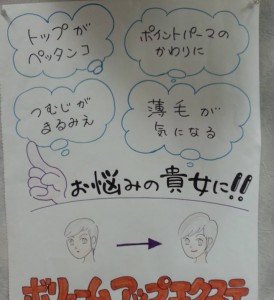 トップが
ペッタンコ
ポイントパーマの
かわりに
つむじが
まるみえ
薄毛が
気になる
お悩みの貴女に!!
ボリュームアップエクステ